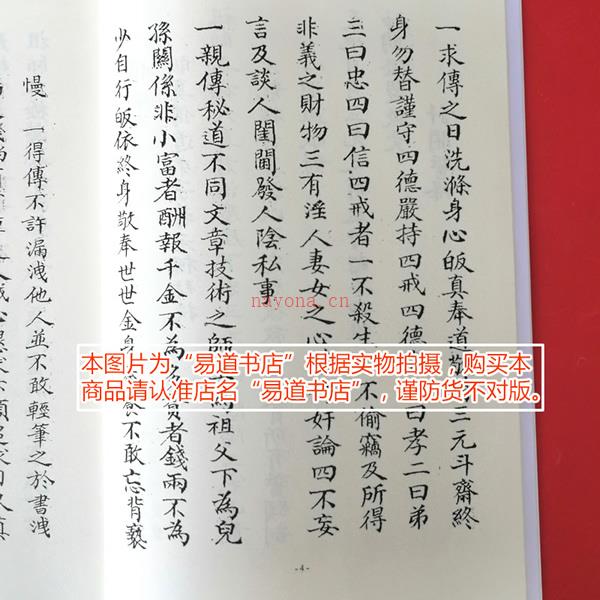 一求傳之日洗滌身心皈真奉道敬三元斗齋終
身勿替謹守四德嚴持四戒四德曰孝二曰弟
三曰忠四曰信四戒者一不殺生不偷竊及所得
非義之財物三有淫人妻女之心奸論四不妄
言及談人閨閫發人陰私事
一親傳秘道不同文章技術之師為祖父下為兒
孫關係非小富者酬報千金不為多貧者錢兩不為
少自行皈依終身敬奉世世金身不敢忘背褻
慢 一得傳不許漏洩他人並不敢輕筆之於書洩
nayona.cn
本图片为“易道书店”根据实物拍摄，购买本
商品请认准店名“易道书店”，谨防货不对版。
-4-